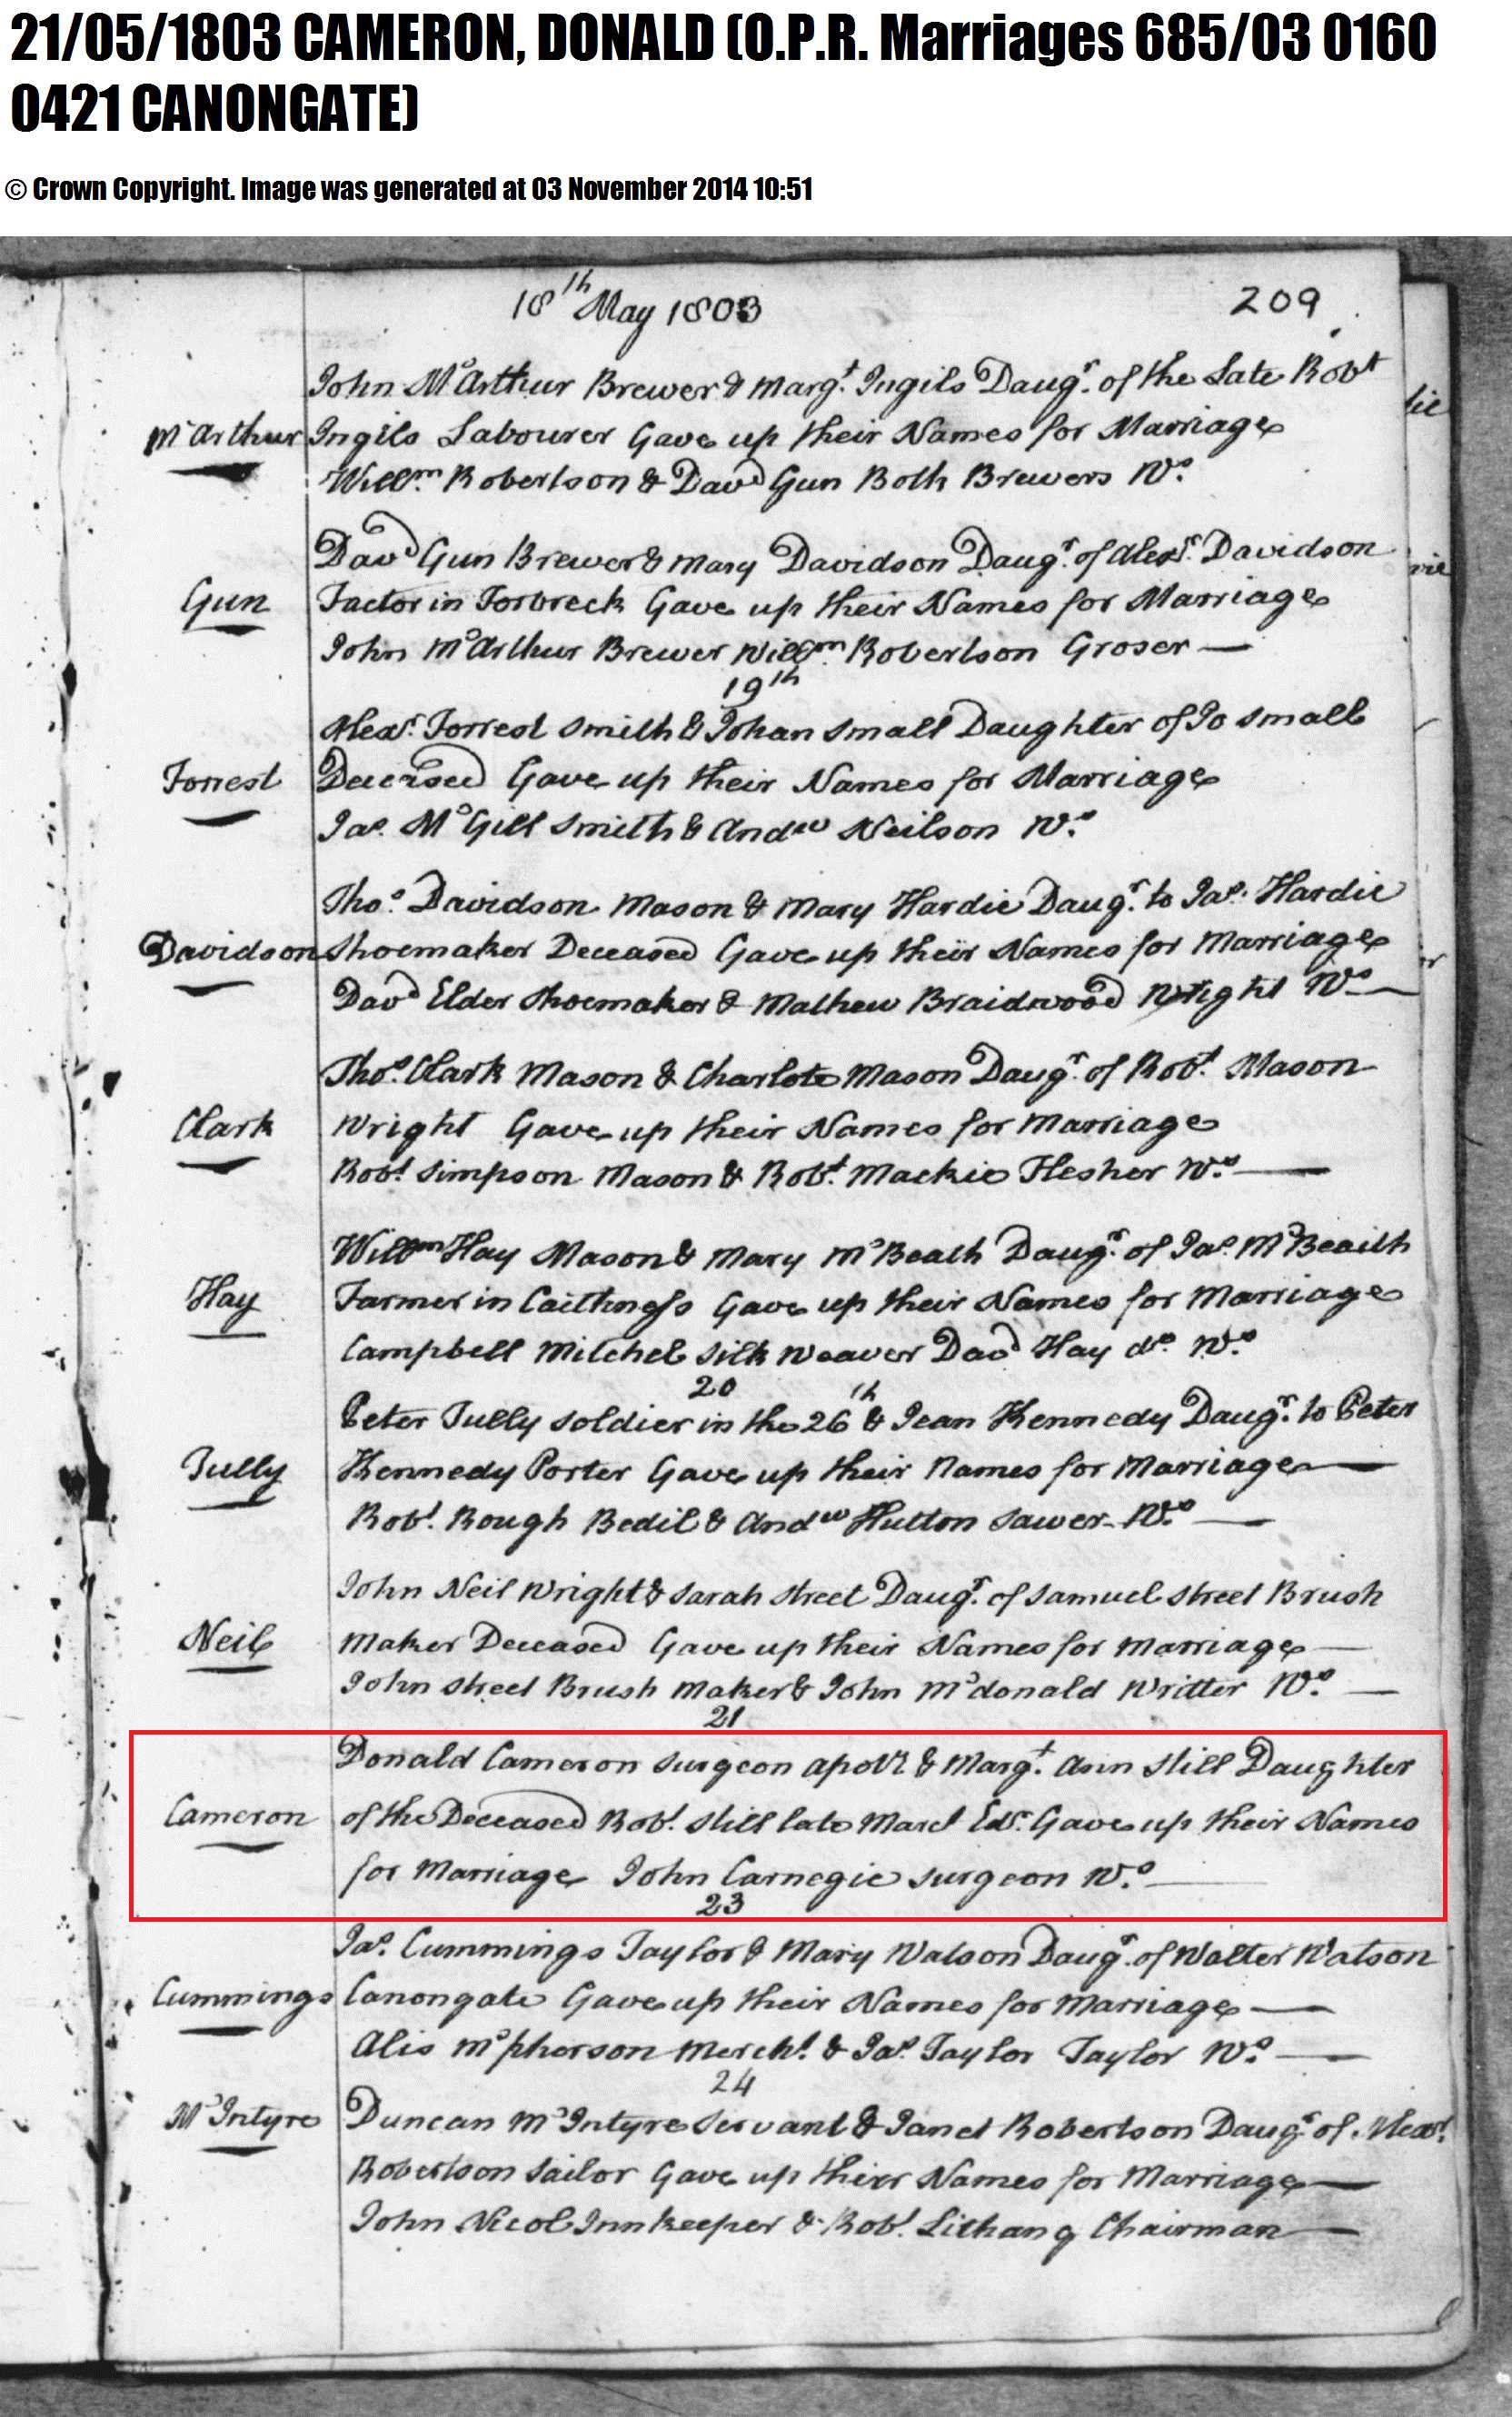 21/05/1803 CAMERON, DONALD (O.P.R. Marriages 685/03 0160
0421 CANONGATE)
© Crown Copyright. Image was generated at 03 November 2014 10:51
18th May 1803 209
John McArthur Brewer & Margt. Ingils Daugr. of the Late Robt
McArthur Ingils Labourer Gave up their Names for Marriage
Willm. Robertson & Davd Gun Both Brewers Ws.
Davd Gun Brewer & Mary Davidson Daugr. of Alexr. Davidson
Gun Factor in Torbreck Gave up their Names for Marriage
John McArthur Brewer Willm. Robertson Groser —
19th
Alexr. Forrest Smith & Johan Small Daughter of Jo Small
Forrest Deceased Gave up their Names for Marriage
Jas. McGill Smith & Andw Neilson Ws.
Thos. Davidson Mason & Mary Hardie Daugr. to Jas. Hardie
Davidson Shoemaker Deceased Gave up their Names for Marriage
Davd Elder Shoemaker & Mathew Braidwood Wright Ws —
Thos. Clark Mason & Charlote Mason Daugr. of Robt. Mason
Clark Wright Gave up their Names for Marriage
Robt. Simpson Mason & Robt. Mackie Flesher Ws. —
Willm Hay Mason & Mary McBeath Daugr. of Jas. McBeaith
Hay Farmer in Caithness Gave up their Names for Marriage
Campbell Mitchel Silk Weaver Davd Hay do. Ws.
20
Peter Tully Soldier in the 26th & Jean Kennedy Daugr. to Peter
Tully Kennedy Porter Gave up their Names for Marriage —
Robt. Rough Bedil & Andw Hutton Sawer Ws. —
John Neil Wright & Sarah Street Daugr. of Samuel Street Brush
Neil Maker Deceased Gave up their Names for Marriage —
John Street Brush Maker & John Mcdonald Writter Ws. —
21
Donald Cameron Surgeon & Margt. Ann Still Daughter
Cameron of the Deceased Robt. Still late Edr. Gave up their Names
for Marriage John Carnegie Surgeon Ws. —
23
Jas. Cummings Taylor & Mary Watson Daugr. of Walter Watson
Cummings Canongate Gave up their Names for Marriage —
Mcpherson Mercht. & Jas. Taylor Taylor Ws. —
24
McIntyre Duncan McIntyre Servant & Janet Robertson Daugr. of Alexr.
Robertson Sailor Gave up their Names for Marriage —
John Nicol Innkeeper & Robt. Chairman —